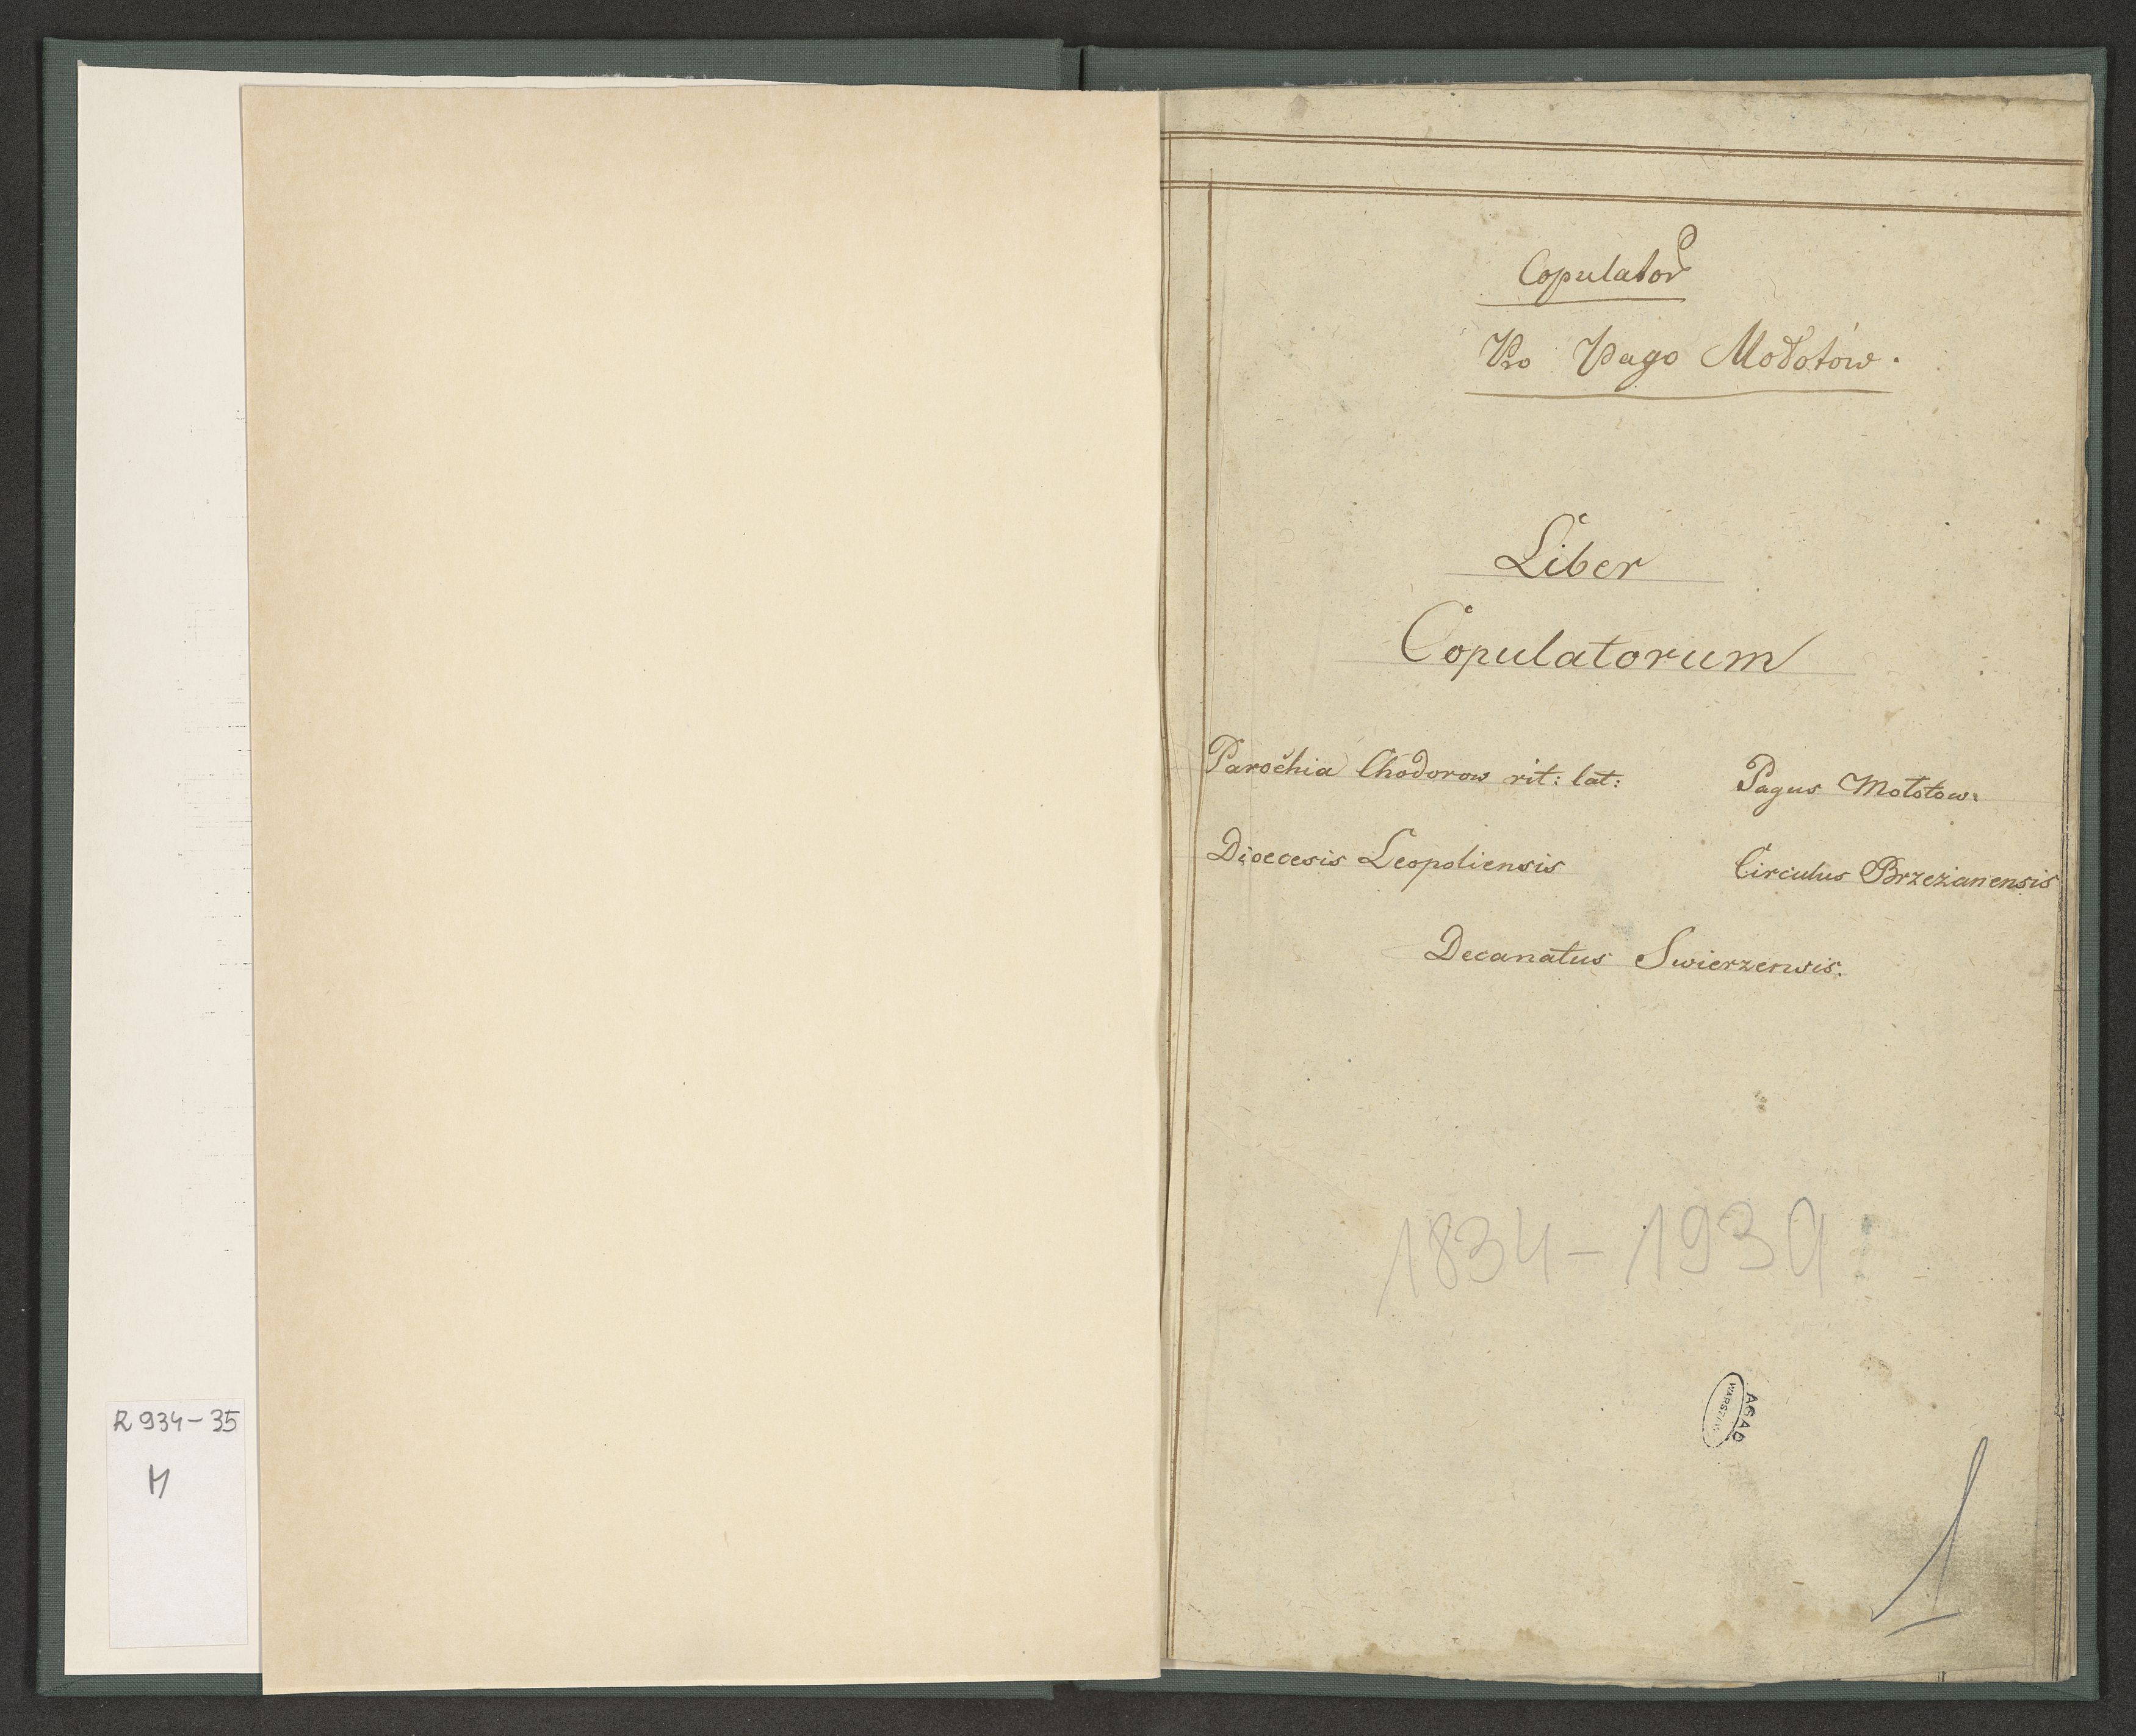 R 934-35
M
Copulator
Pro Pago Mołotów.
Liber
Copulatorum
Parochia Chodorow rit: lat: Pagus Mołotow.
Dioecesis Leopoliensis Circulus Brzezanensis
Decanatus Swierzensis.
1834-1939
AGAD
WARSZAWA
1